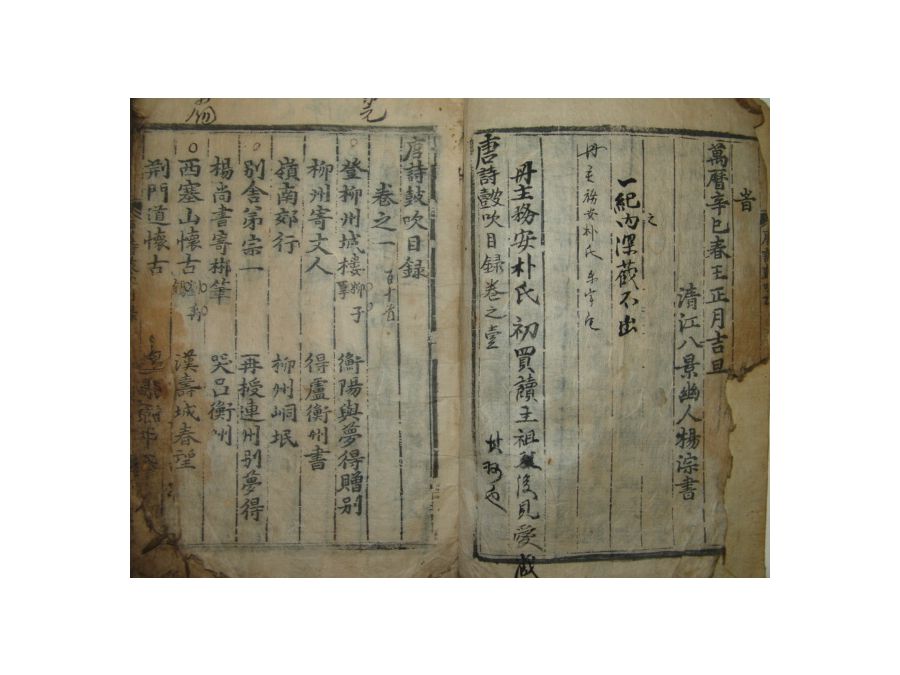 萬曆辛巳春王正月吉旦
清江八景幽人楊淙書
一紀內深藏不出
冊主務安朴氏
冊主務安朴氏初買讀主祖及後見愛
唐詩鼓吹目録卷之壹
唐詩鼓吹目録
卷之一 百十首
登柳州城樓 柳子厚 衡陽與夢得贈别
柳州寄丈人 得盧衡州書
嶺南郊行 柳州峒氓
别舍弟宗一 再授連州别夢得
楊尚書寄郴筆 哭吕衡州
西塞山懷古 漢壽城春望
荆門道懷古